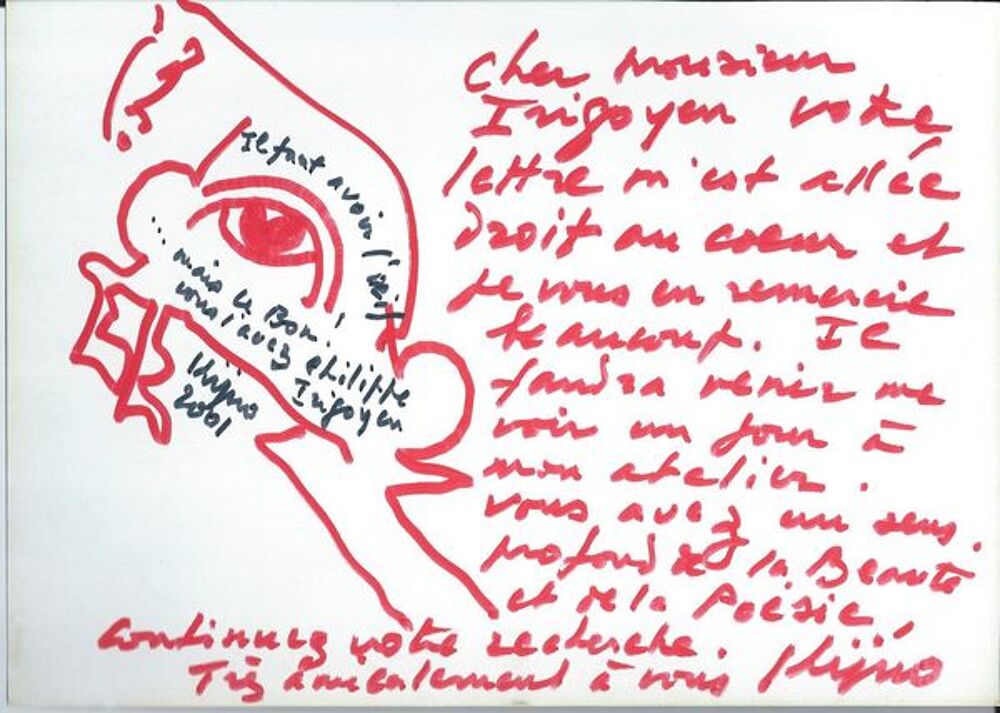 Il faut avoir l'œil
... mais le Bon !
vous l'avez Philippe
Irigoyen
Kijno
2001
Cher monsieur
Irigoyen votre
lettre m'est allée
droit au coeur et
je vous en remercie
beaucoup. Il
faudra venir me
voir un jour à
mon atelier.
vous avez un sens
profond de la Beauté
et de la Poésie,
continuez votre recherche.
Très amicalement à vous Kijno